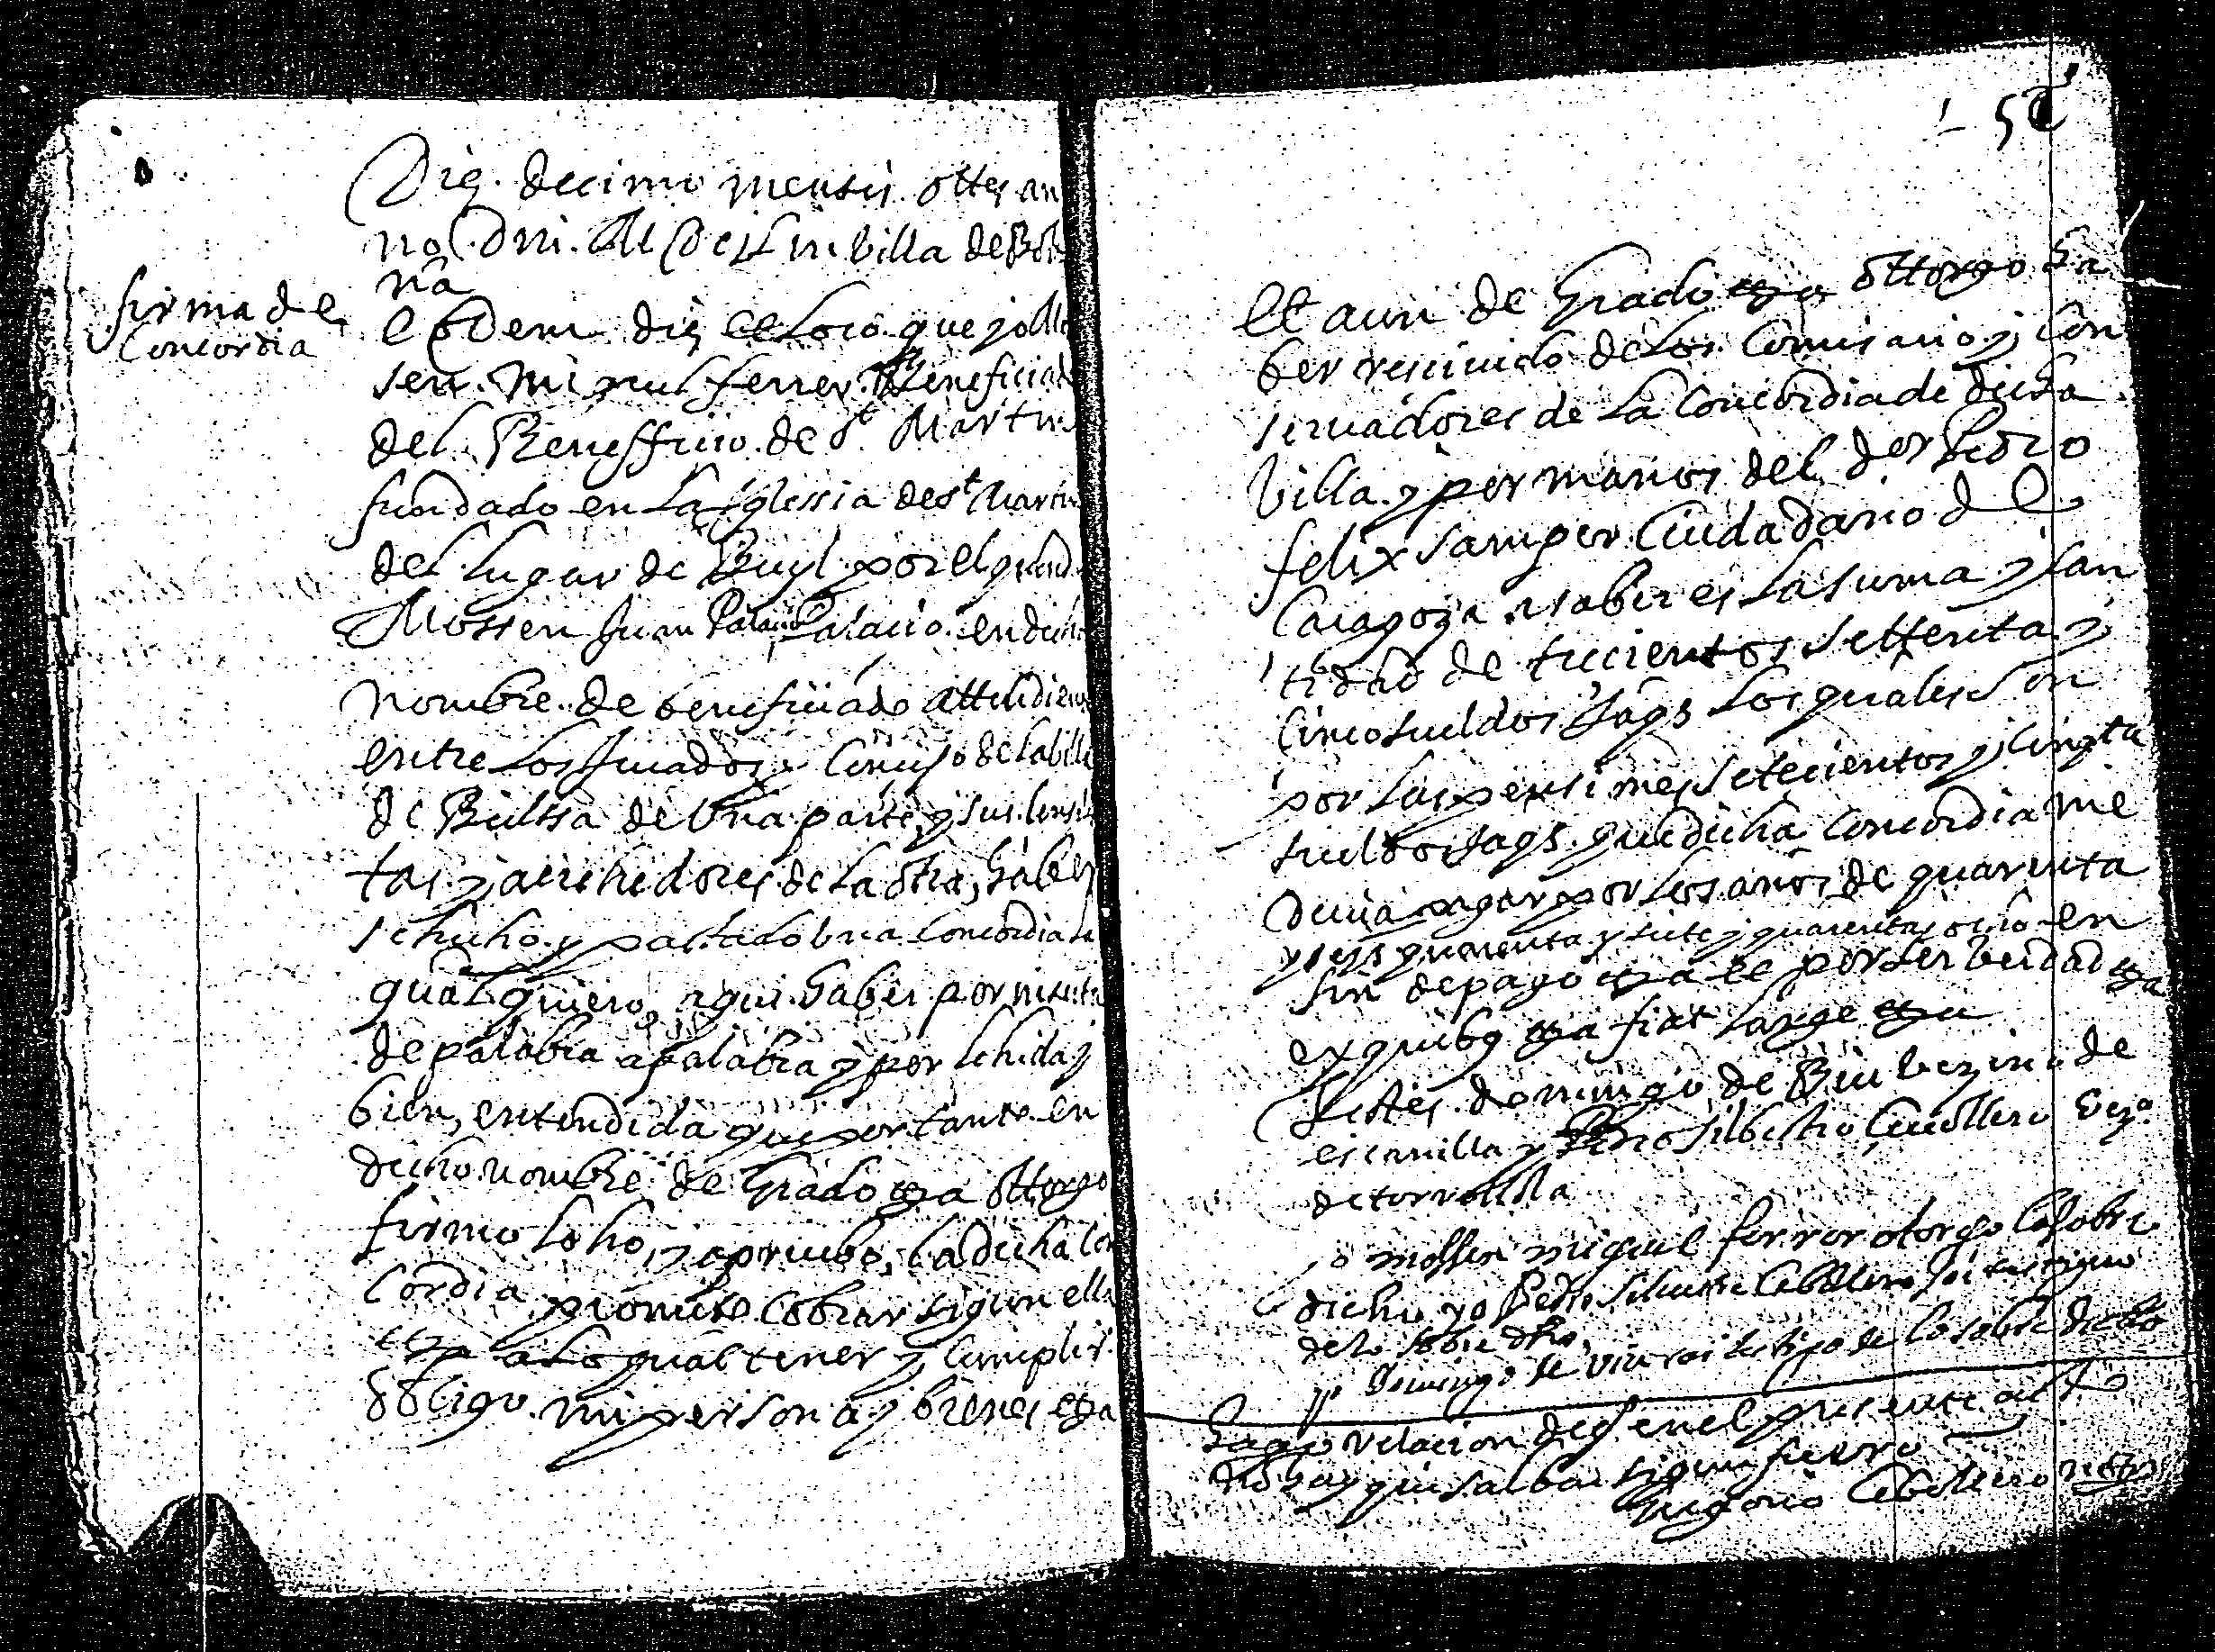 Die decimo mensis 8ttes an
no Dni. M DC in villa de Bolta
na
firma de
Concordia
eodem die et Loco que yo Mo
sen miguel ferrer Beneficiado
del Benefficio de St Martin
fundado en La iglessia de st Martin
del Lugar de por el quond
Mossen Juan Palacio en dicho
nombre de beneficiado attendiendo
entre Los Jurados y Concejo de la billa
de Bielssa de Una parte, y sus Censa
tas y acrehedores de La otra, haber
se hecho y pactado bna Concordia La
qual quiero aqui haber por inserta
de palabra a palabra y por lehida y
bien, entendida que por tanto en
dicho nombre de Grado etza ottorgo
firmo Loho, y apruebo, La dicha Con
Cordia promete Cobrar sigun ella
etza a Lo qual tener y Cumplir
obligo mi persona y bienes etza
Et aun de Grado etza ottorgo ha
ber recivido de Los Comisario y Con
servadores de La Concordia de dicha
Villa y por manos del dor Pedro
felix Samper Ciudadano de
Caragoza a saber es La suma y Can
tidad de trecientos settenta y
Cinco sueldos Jaqs Los quales son
por Las pensiones setecientos y cinqta
sueldos Jaqs que dicha Concordia me
devia pagar por Los años de quarenta
y seys quarenta y siete y quarenta y ocho en
fin de pago etza et por ser berdad etza
ex quibus etza fiat Large etza
Testes domingo de Biu bezino de
escanilla y Pedro silbestro Cevollero bezo
de torrolilla
yo mossen miguel ferrer otorgo Lo sobre
dicho yo Pedro silvestre Cebollero soi testigo
de lo sobre dho
yo Domingo de Viu soi testigo de lo sobre dicho
Hago relacion de q en el presente acto
no hay que salbar sigun fuero
Gregorio Cebollero notro